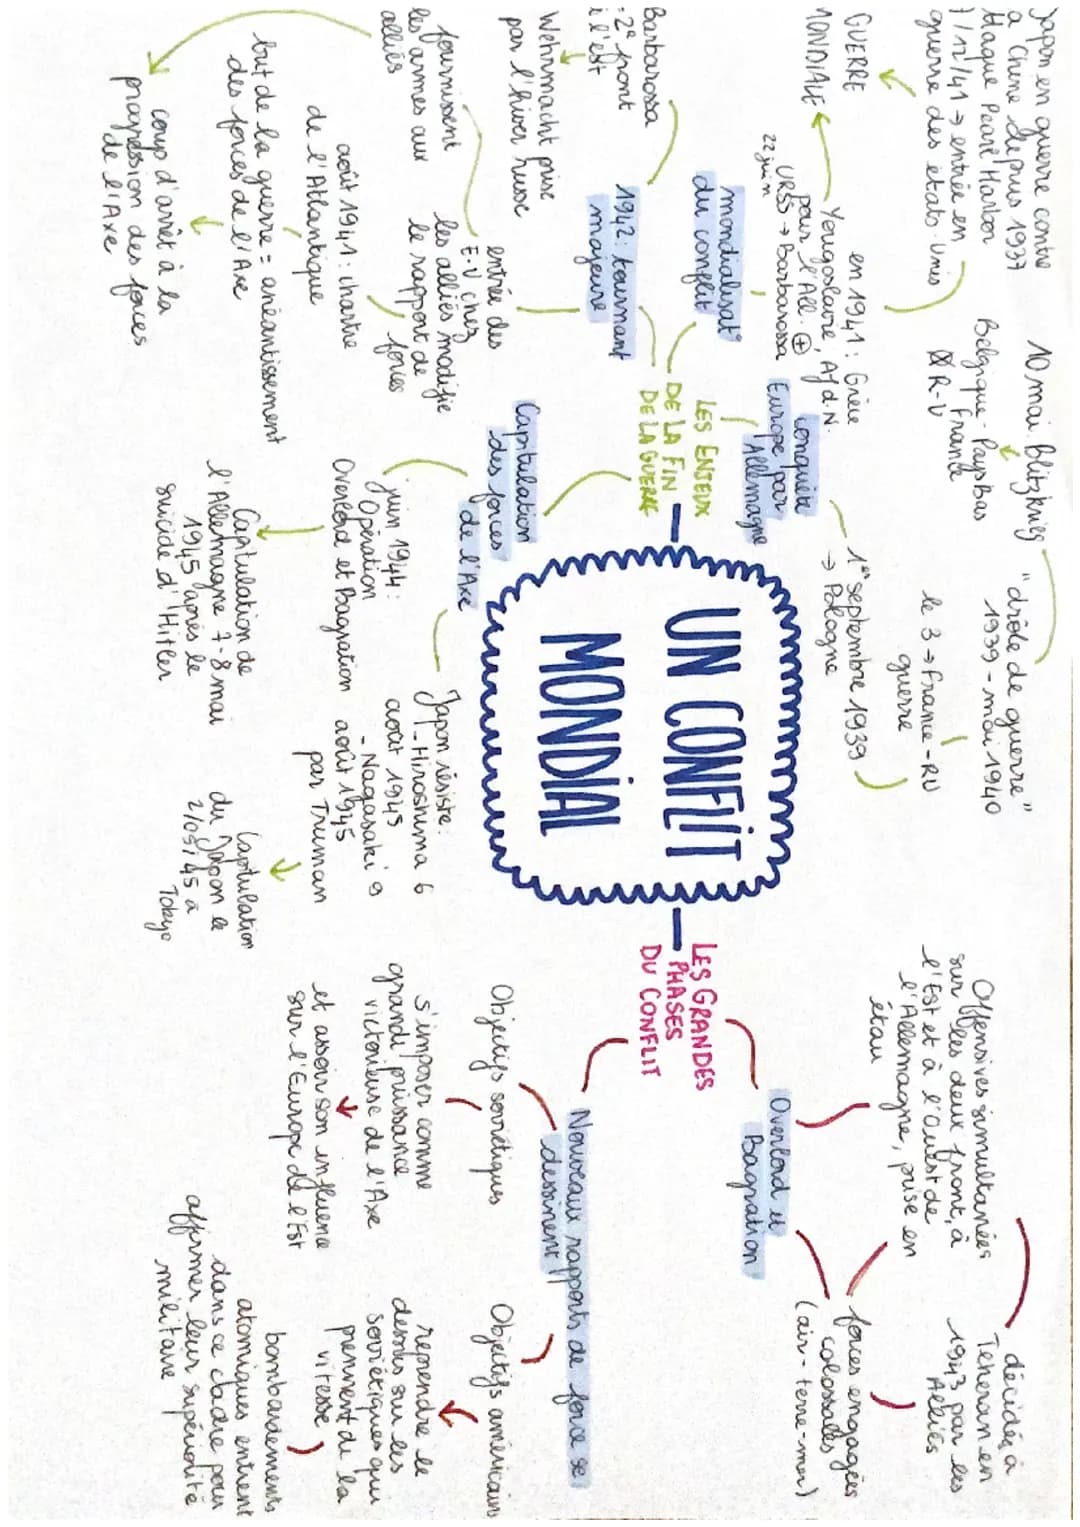 UN CONFLIT
MONDIAL
LES ENJEUX
DE LA FIN
DE LA GUERRE
conquête
Europe par
Allemagne
1er septembre 1939
→ Pologne
le 3 → France - RU
guerre
"drôle de guerre"
1939 - mai 1940
10 mai Blitzkrieg
Belgique - Pays Bas
France
R-U
mondialisat°
du conflit
en 1941 : Grèce
Yougoslavie, Af d. N.
pour l'All. ⊕
URSS → Barbarossa
22 juin
Japon en guerre contre
a Chine depuis 1937
ttaque Pearl Harbor
7/12/41 → entrée en
guerre des états-Unis
GUERRE
MONDIALE
1942 : tournant
majeure
Barbarossa
= 2e front
à l'est
Wehrmacht prise
par l'hiver russe
entrée des
E-U chez
les alliés modifie
le rapport de
forces
fournissent
les armes aux
alliés
août 1941 : charte
de l'Atlantique
but de la guerre = anéantissement
des forces de l'Axe
coup d'arrêt à la
progression des forces
de l'Axe
Capitulation
des forces
de l'Axe
juin 1944 :
Opération
Overlord et Bagration
Capitulation de
l'Allemagne 7-8 mai
1945 après le
suicide d'Hitler
Japon résiste :
- Hiroshima 6
août 1945
- Nagasaki 9
août 1945
par Truman
Capitulation
du Japon le
2/09/45 à
Tokyo
LES GRANDES
PHASES
DU CONFLIT
Overlord et
Bagration
Offensives simultanées
sur les deux front, à
l'Est et à l'Ouest de
l'Allemagne, prise en
étau
décidés à
Teheran en
1943 par les
Alliés
forces engagées
colossales
(air - terre - mer)
Nouveaux rapports de force se
dessinent
Objectifs soviétiques
s'imposer comme
grande puissance
victorieuse de l'Axe
et assoir son influence
sur l'Europe de l'Est
Objectifs américains
reprendre le
dessus sur les
soviétiques qui
prennent de la
vitesse
bombardements
atomiques entrent
dans ce cadre pour
affirmer leur supériorité
militaire